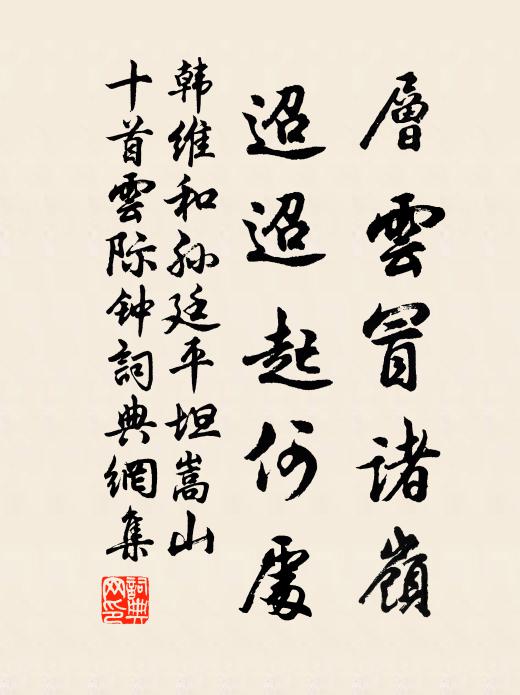 層雲冒諸嶺
迢迢起何處
韩維和孙廷平坦嵩山
十首雲际钟詞典網集
詞典网印